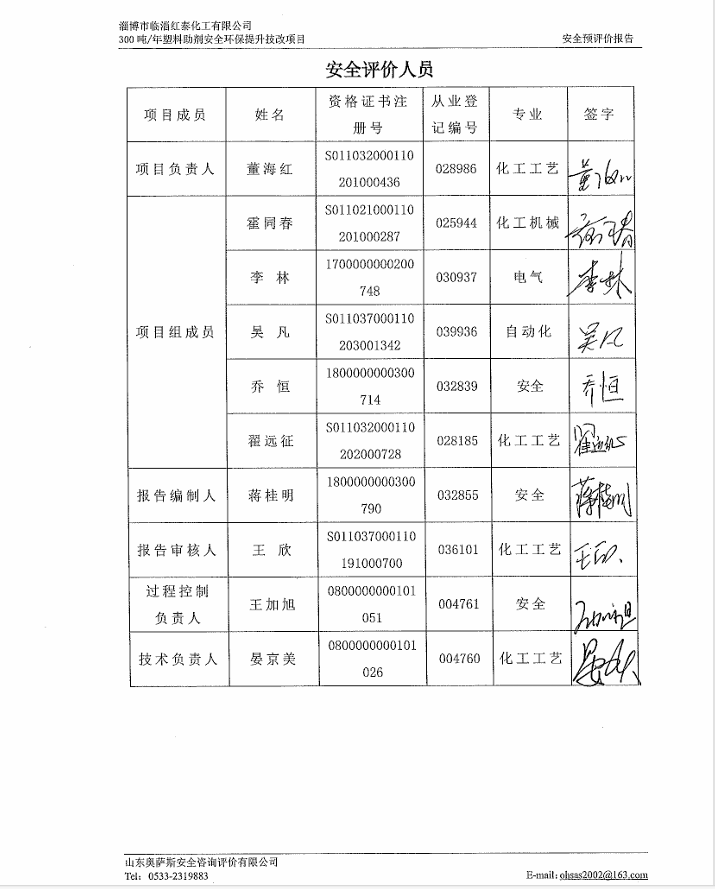 淄博市临淄红泰化工有限公司
300 吨/年塑料助剂安全环保提升技改项目 安全预评价报告
安全评价人员
项目成员 姓名 资格证书注册号 从业登记编号 专业 签字
项目负责人 董海红 S011032000110201000436 028986 化工工艺
项目组成员 霍同春 S011021000110201000287 025944 化工机械
李 林 1700000000200748 030937 电气 李林
吴 凡 S011037000110203001342 039936 自动化 吴凡
乔 恒 1800000000300714 032839 安全 乔恒
翟远征 S011032000110202000728 028185 化工工艺
报告编制人 蒋桂明 1800000000300790 032855 安全 蒋桂明
报告审核人 王 欣 S011037000110191000700 036101 化工工艺
过程控制负责人 王加旭 0800000000101051 004761 安全
技术负责人 晏京美 0800000000101026 004760 化工工艺
山东奥萨斯安全咨询评价有限公司
Tel: 0533-2319883 E-mail: ohsas2002@163.com